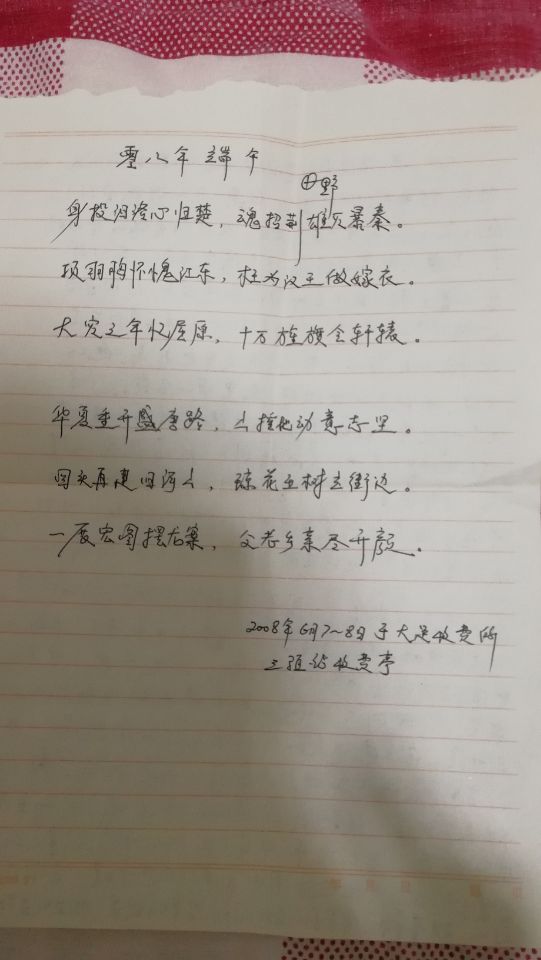 零八年端午
田野
身投汨洛心归楚，魂招荆雄灭暴秦。
项羽胸怀愧江东，枉为汉王做嫁衣。
大灾之年忆屈原，十万旌旗会轩辕。
华夏重开盛唐路，山摇地动意志坚。
回头再建旧河山，琼花玉树去街边。
一展宏图摆龙案，父老乡亲尽开颜。
2008年6月7~8日于大足收费所
三驱站收费亭